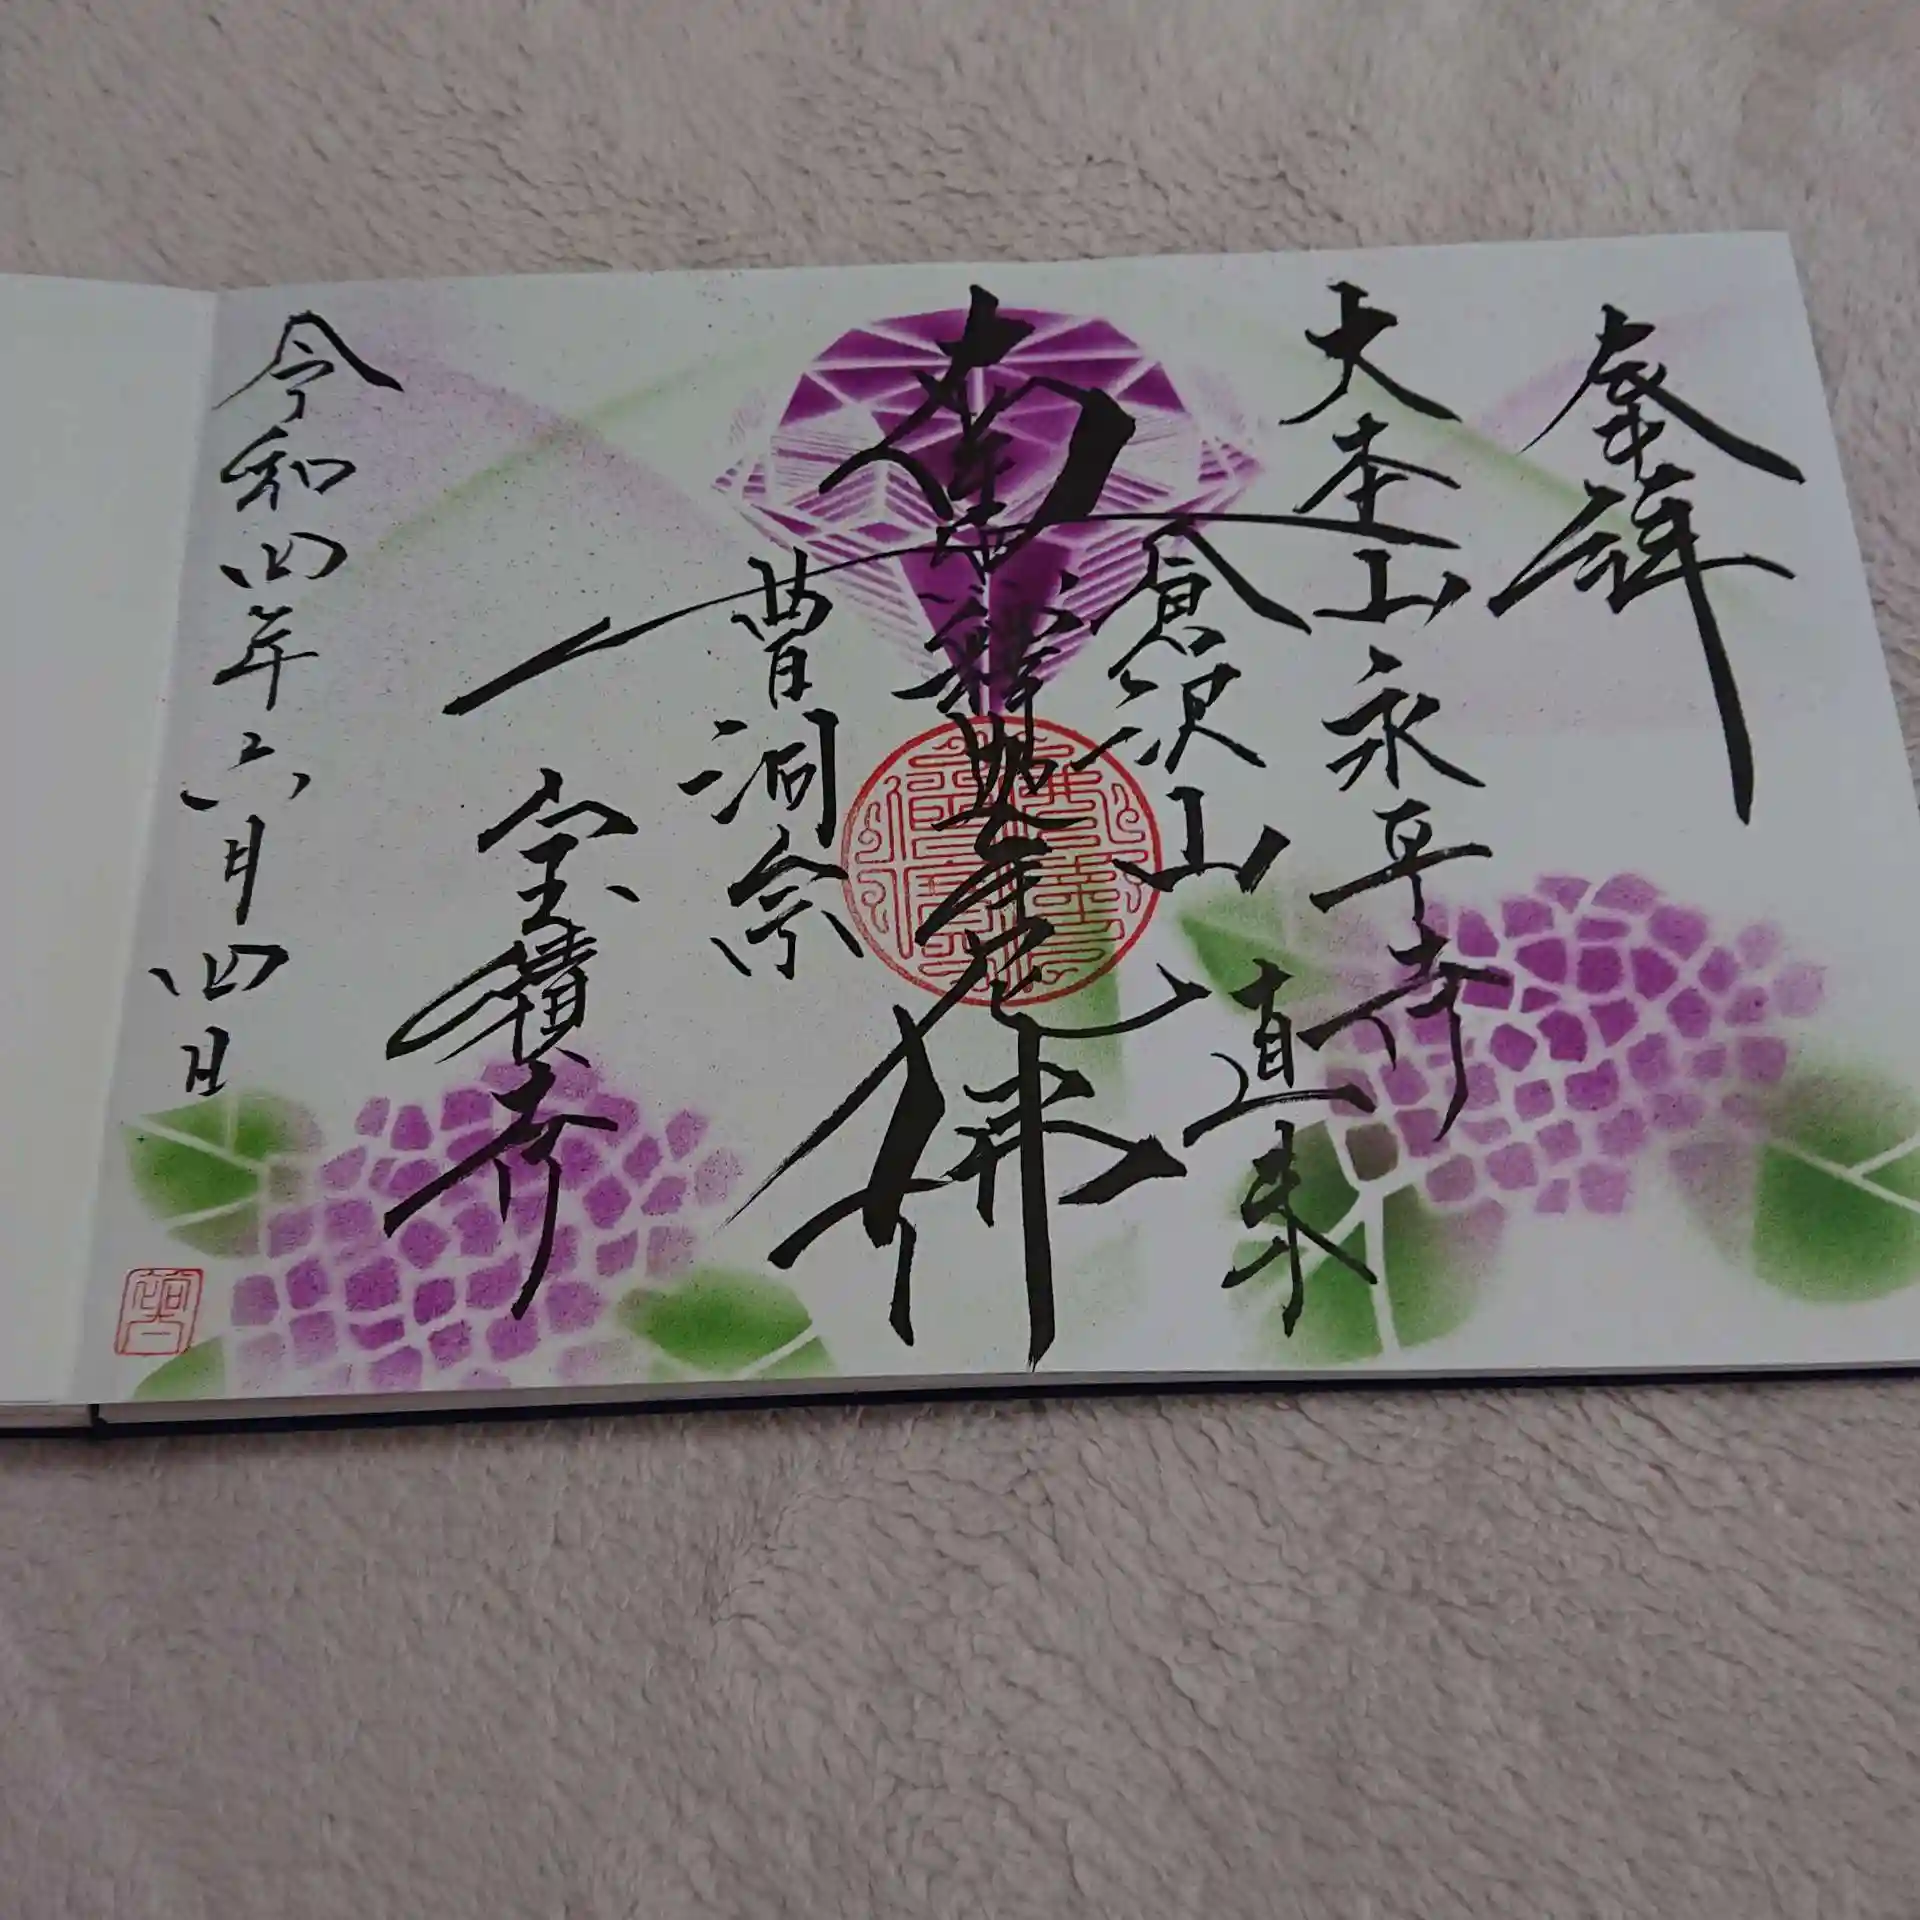 奉拝
大本山永平寺直末
倉沢山
南無釈迦牟尼佛
曹洞宗
宝積寺
令和四年六月四日